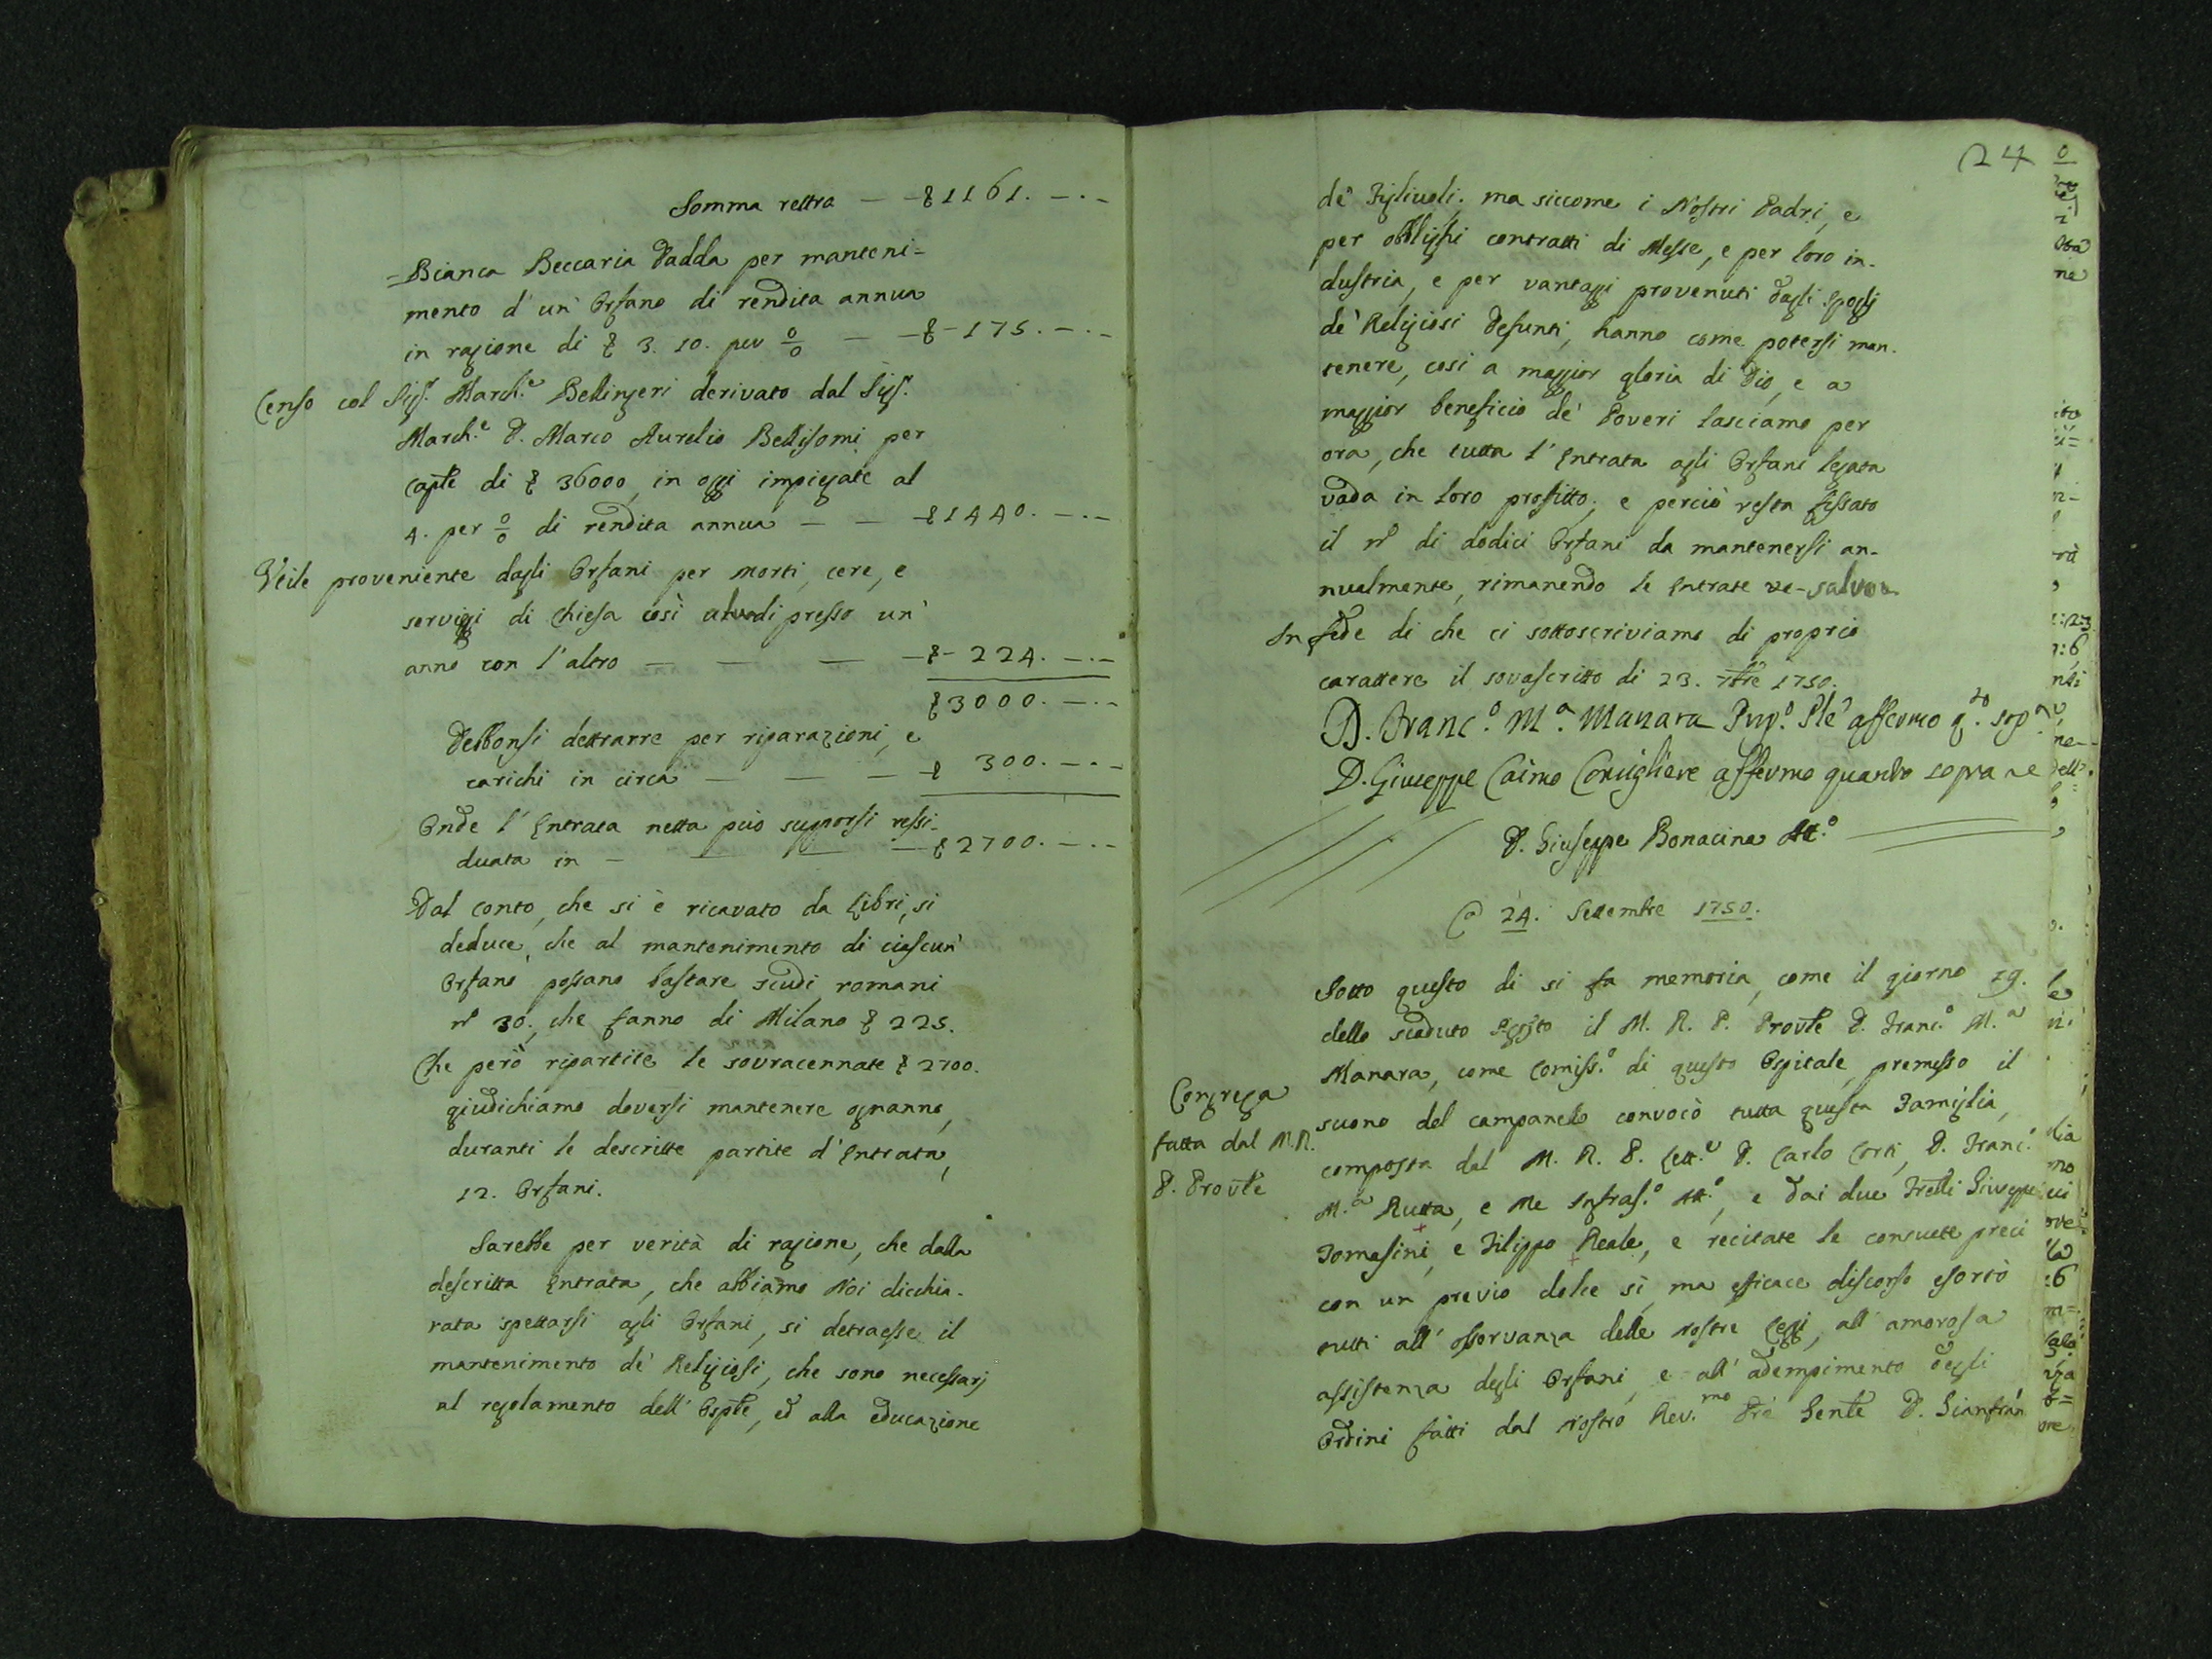 Somma rettra — — £ 1161. — . —
= Bianca Beccaria Dadda per manteni-
mento d'un' Orfano di rendita annua
in ragione di £ 3. 10. per % — — £ 175. — . —
Censo col Sigr. March.e Bellingeri derivato dal Sigr.
March.e D. Marco Aurelio Bellisomi per
capte di £ 36000, in oggi impiegate al
4. per % di rendita annua — — £ 1440. — . —
Utile proveniente dagli Orfani per morti, cere, e
servigi di Chiesa così a un di presso un'
anno con l'altro — — — — £ 224. — . —
£ 3000. — . —
Debbonsi dettrarre per riparazioni, e
carichi in circa — — — £ 300. — . —
Onde l'Entrata netta può supporsi ressi-
duata in — — — — £ 2700. — . —
Dal conto, che si è ricavato da Libri, si
deduce, che al mantenimento di ciascun'
Orfano possano bastare scudi romani
n° 30., che fanno di Milano £ 225.
Che però ripartite le sovracennate £ 2700.
giudichiamo doversi mantenere ognanno,
duranti le descritte partite d'Entrata,
12. Orfani.
Sarebbe per verità di ragione, che dalla
descritta Entrata, che abbiamo Noi dicchia-
rata spettarsi agli Orfani, si detraesse il
mantenimento de' Religiosi, che sono necessarj
al regolamento dell'Ospte, ed alla educazione
24
de' Figliuoli; ma siccome i Nostri Padri, e
per obblighi contratti di Messe, e per loro in-
dustria, e per vantaggi provenuti dagli spoglj
de' Religiosi defunti, hanno come potersi man-
tenere, così a maggior gloria di Dio, e a
maggior beneficio de' Poveri lasciamo per
ora, che tutta l'Entrata agli Orfani legata
vada in loro profitto; e perciò resta fissato
il n° di dodici Orfani da mantenersi an-
nualmente, rimanendo le Entrate ve- salvo
In fede di che ci sottoscriviamo di proprio
carattere il sovascritto di 23. 7bre 1750.
D. Franc.o M.a Manara Prep.o Ple' affermo q.to sop.a
D. Giuseppe Caimo Consigliere affermo quanto sopra
D. Giuseppe Bonacina Att.o
@ 24. Settembre 1750.
Sotto questo di si fa memoria, come il giorno 19.
dello scaduto Agosto il M. R. P. Provle D. Franc.o M.a
Manara, come Comiss.o di questo Ospitale, premesso il
Congrega
fatta dal M. R.
P. Provle
suono del campanello convocò tutta questa Famiglia,
composta dal M. R. P. Lett.e D. Carlo Corti, D. Franc.o
M.a Rutta, e Me Infras.o Att.o, e dai due Frelli Giuseppe
Tomasini, e Filippo Reale, e recitate le consuete preci
con un previo dolce sì, ma efficace discorso esortò
tutti all'osservanza delle nostre Leggi, all'amorosa
assistenza degli Orfani, e all'adempimento degli
Ordini fatti dal Nostro Rev.mo Pre Genle D. Gianfran